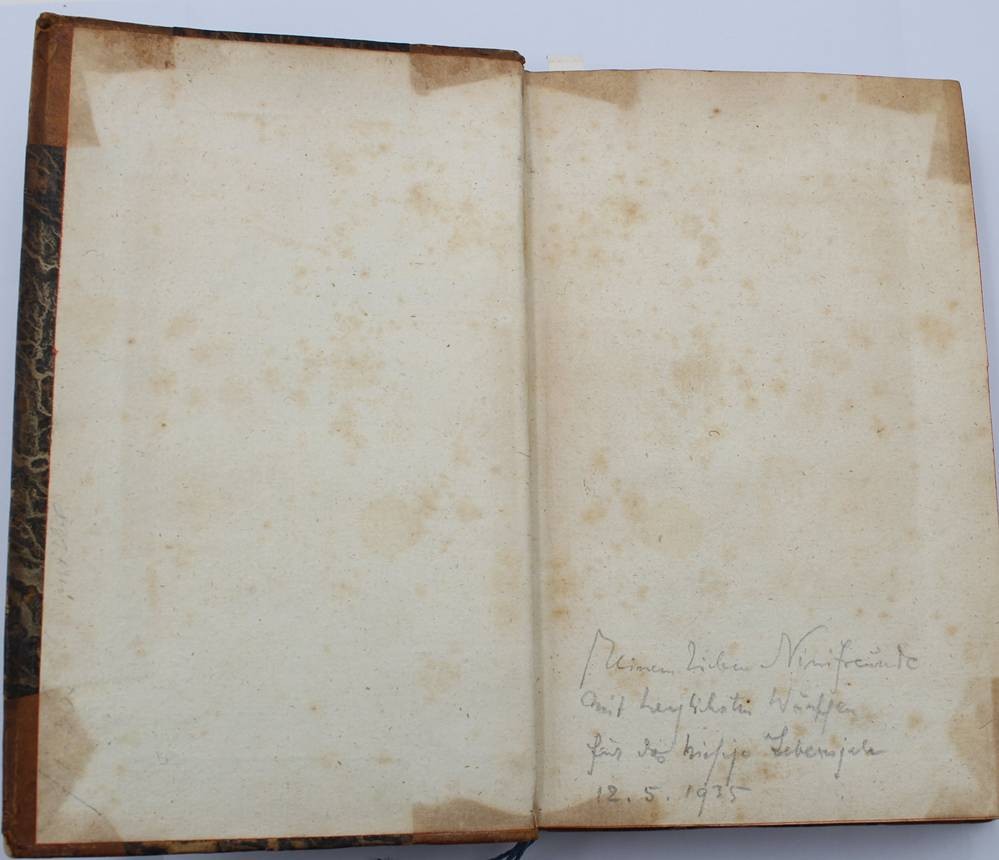 Meinem lieben Ninifreunde
mit herzlichsten Wünschen
für das Lebensjahr
12. 5. 1935